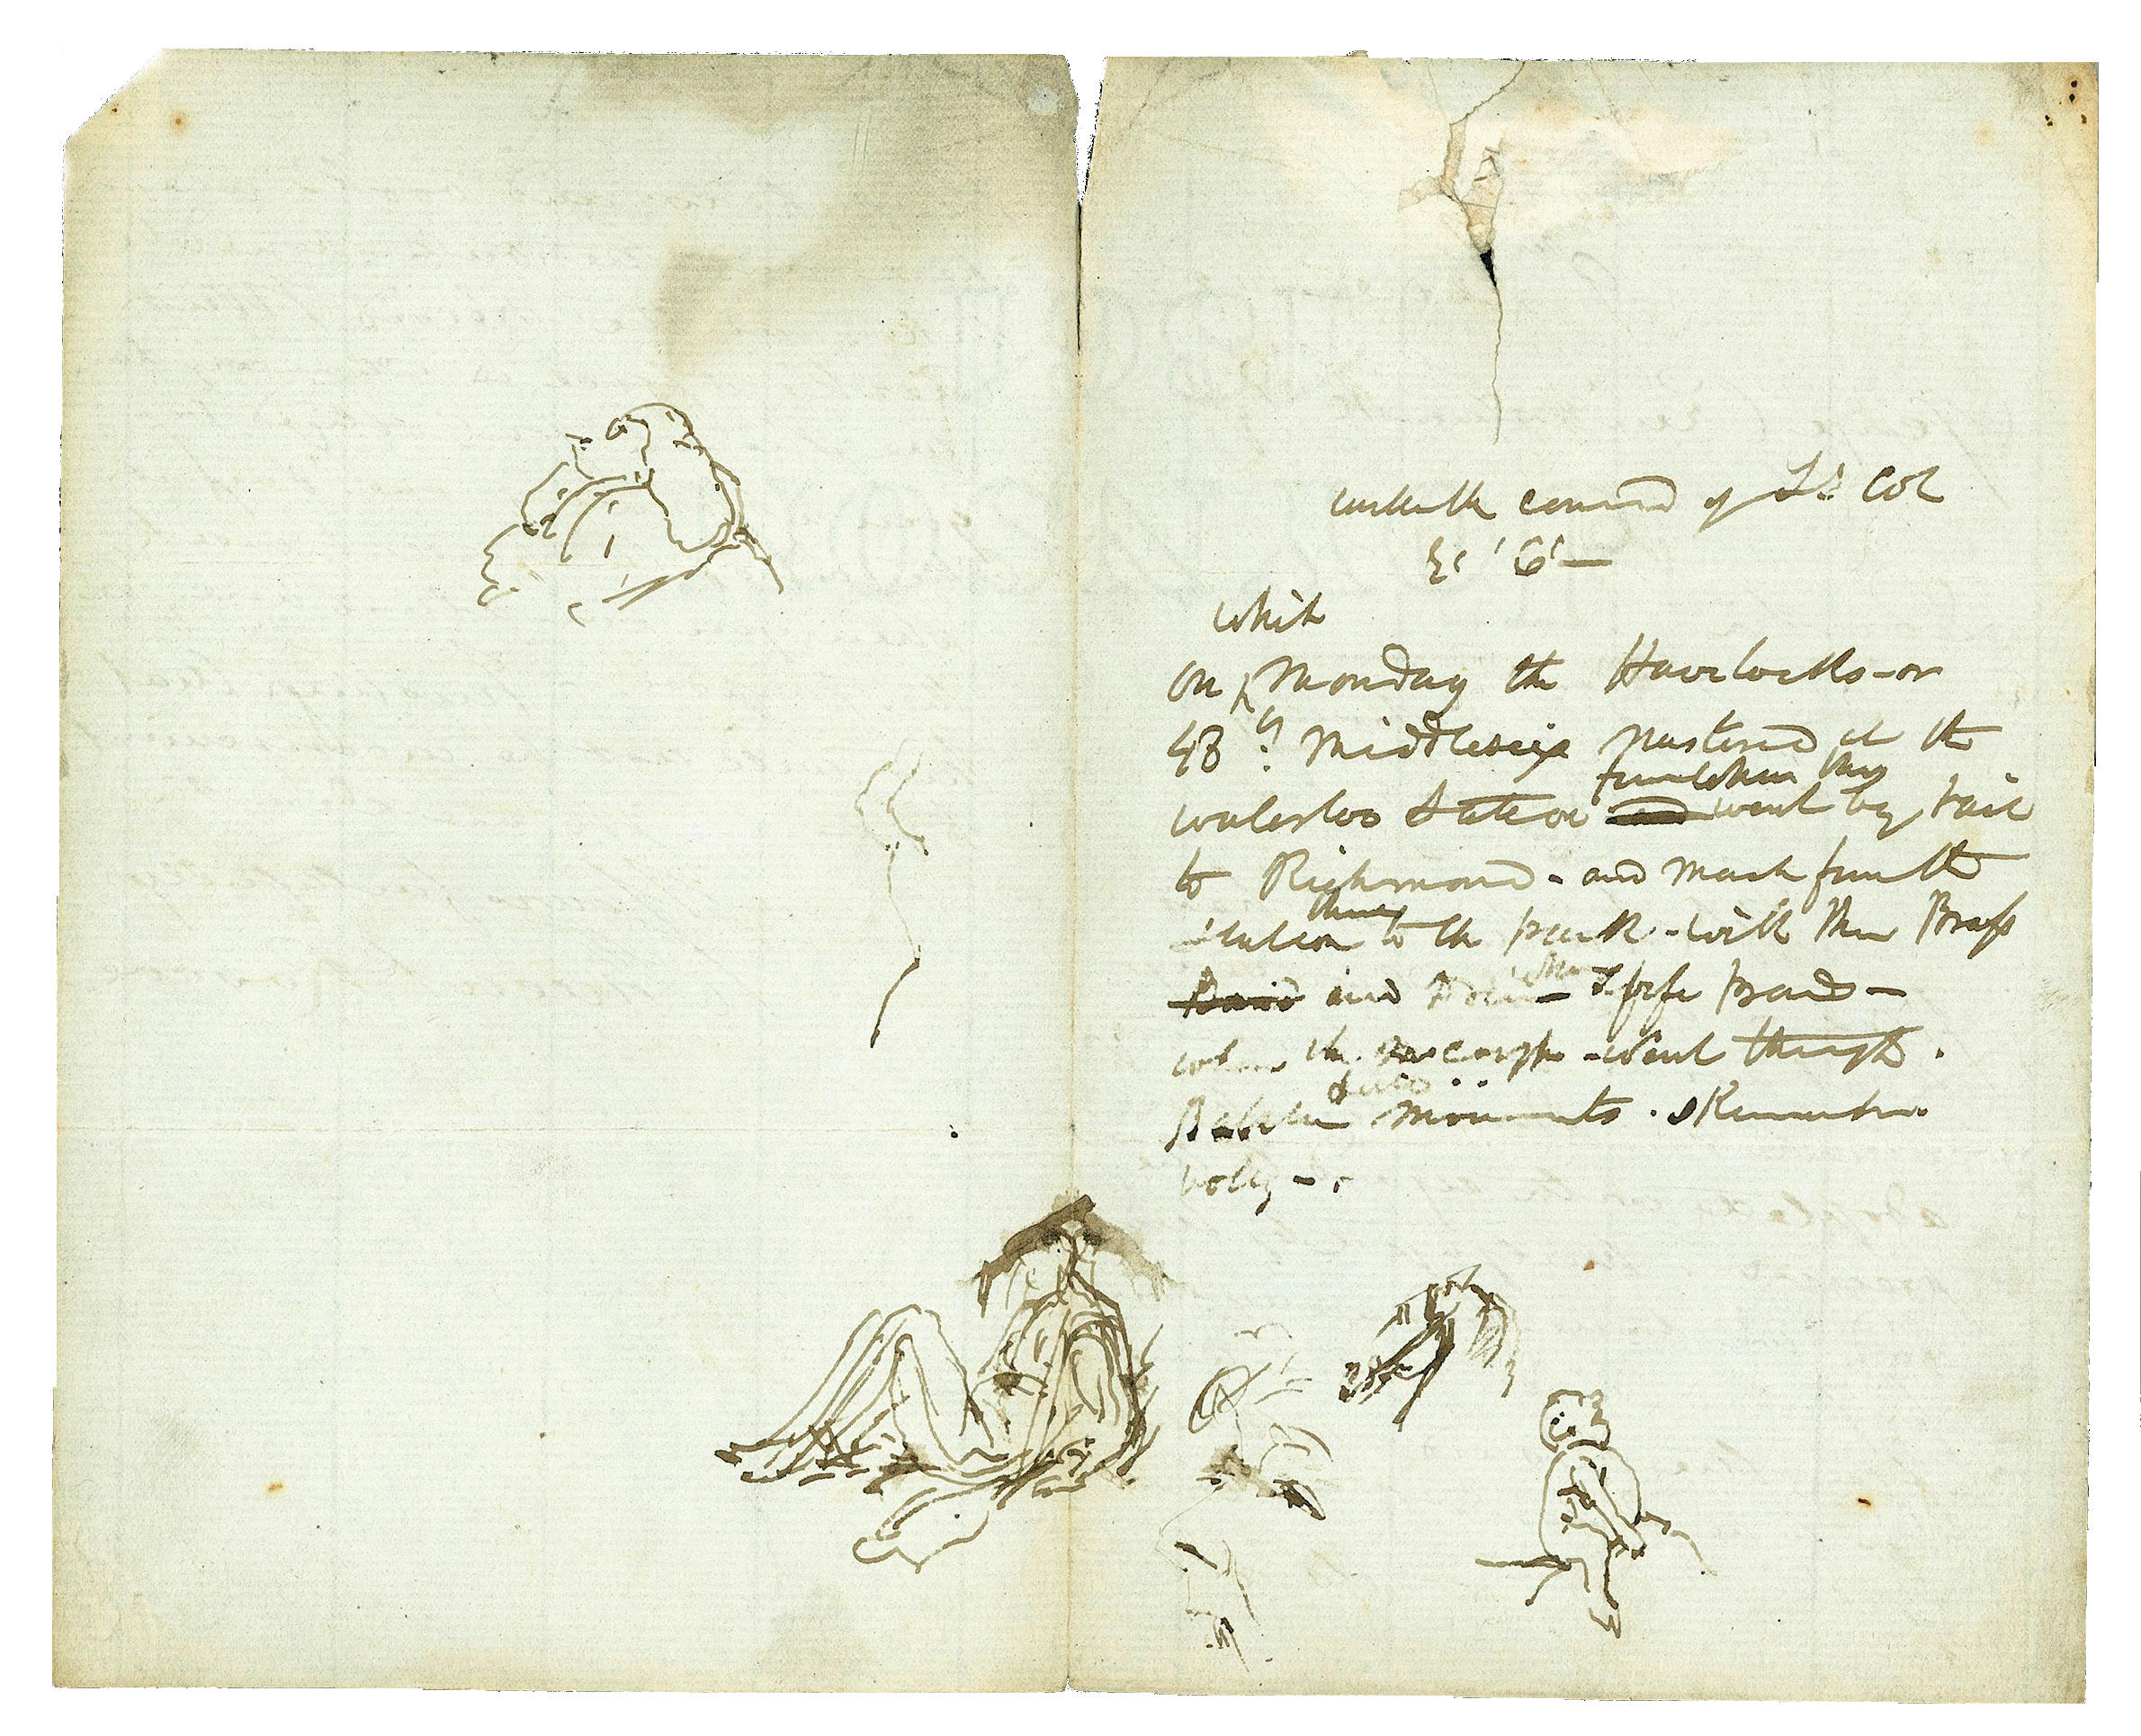 command of Lt Col
G —
Whit
on Monday the Havelocks - or
48th Middlesex Mustered at the
from whence they
Waterloo Station and went by rail
to Richmond - and march from the
station to the park - with their Brass
Band and & fife Band -
when the corps - went through
movements .
volly - .